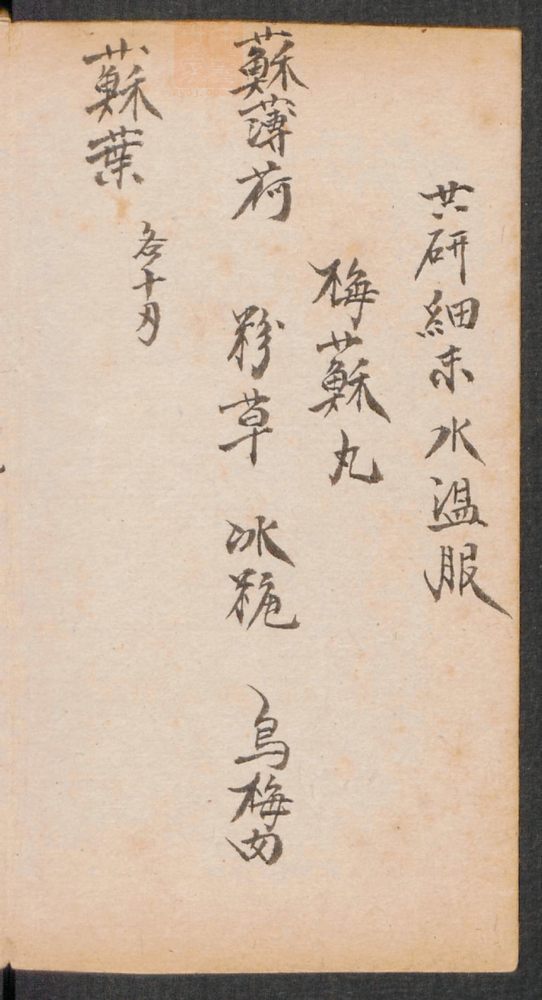 共研細末水温服
梅蘇丸
蘇薄荷 粉草 冰糖 烏梅肉
蘇葉 各十刄